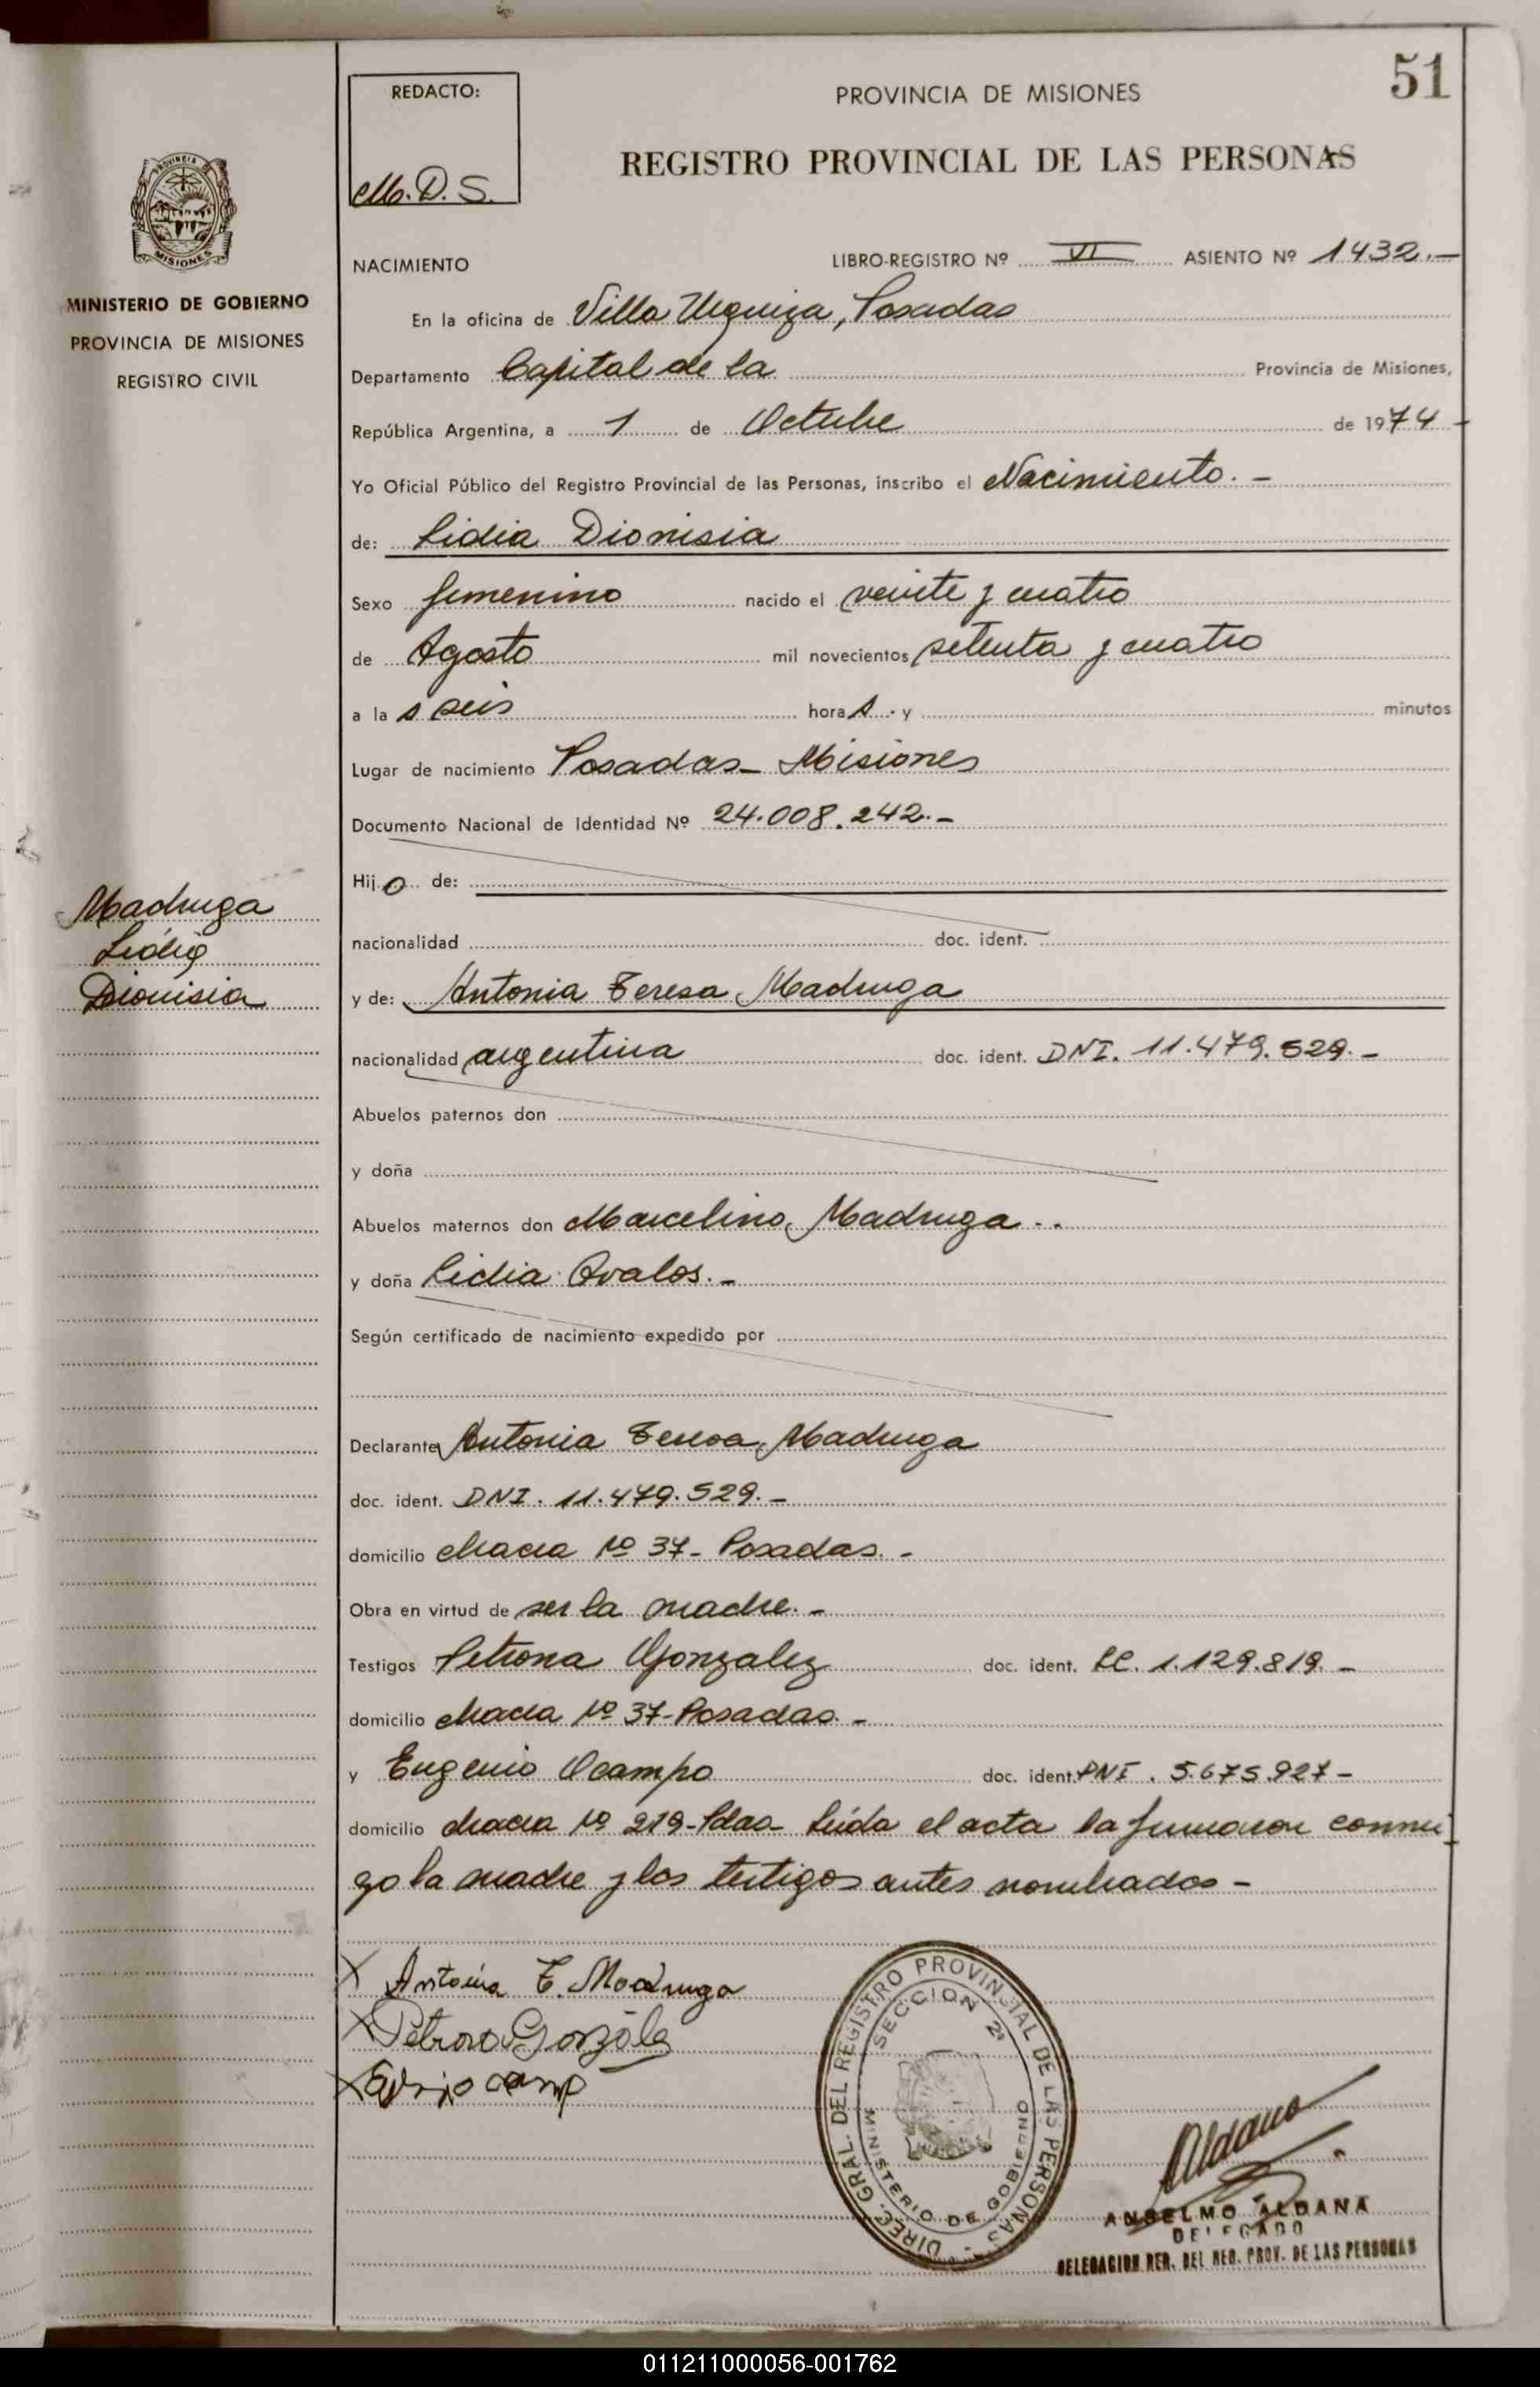 51
REDACTO:
M. D. S.
PROVINCIA DE MISIONES
REGISTRO PROVINCIAL DE LAS PERSONAS
PROVINCIA
MISIONES
MINISTERIO DE GOBIERNO
PROVINCIA DE MISIONES
REGISTRO CIVIL
NACIMIENTO LIBRO-REGISTRO Nº VI ASIENTO Nº 1432.-
En la oficina de Villa Urquiza, Posadas
Departamento Capital de la Provincia de Misiones,
República Argentina, a 1 de Octubre de 1974-
Yo Oficial Público del Registro Provincial de las Personas, inscribo el Nacimiento.-
de: Lidia Dionisia
Sexo femenino nacido el veinte y cuatro
de Agosto mil novecientos setenta y cuatro
a las seis horas.y minutos
Lugar de nacimiento Posadas- Misiones
Documento Nacional de Identidad Nº 24.008.242.-
Hijo de:
nacionalidad doc. ident.
Madruga
Lidia
Dionisia
y de: Antonia Teresa Madruga
nacionalidad argentina doc. ident. DNI. 11.479.529.-
Abuelos paternos don
y doña
Abuelos maternos don Marcelino Madruga..
y doña Lidia Ovalos.-
Según certificado de nacimiento expedido por
Declarante Antonia Teresa Madruga
doc. ident. DNI. 11.479.529.-
domicilio chacra Nº 37- Posadas.-
Obra en virtud de ser la madre.-
Testigos Petrona Gonzalez doc. ident. LC. 1.129.819.-
domicilio chacra Nº 37-Posadas.-
y Eugenio Ocampo doc. ident. DNI. 5.675.927-
domicilio chacra Nº 219-Pdas- Leída el acta la firmaron conmi
go la madre y los testigos antes nombrados-
X Antonia T. Madruga
X Petrona Gonzále
X
DIREC. GRAL. DEL REGISTRO PROVINCIAL DE LAS PERSONAS -
SECCION 2ª
MINISTERIO DE GOBIERNO
Aldana
ANSELMO ALDANA
DELEGADO
DELEGACION RER. DEL REG. PROV. DE LAS PERSONAS
011211000056-001762